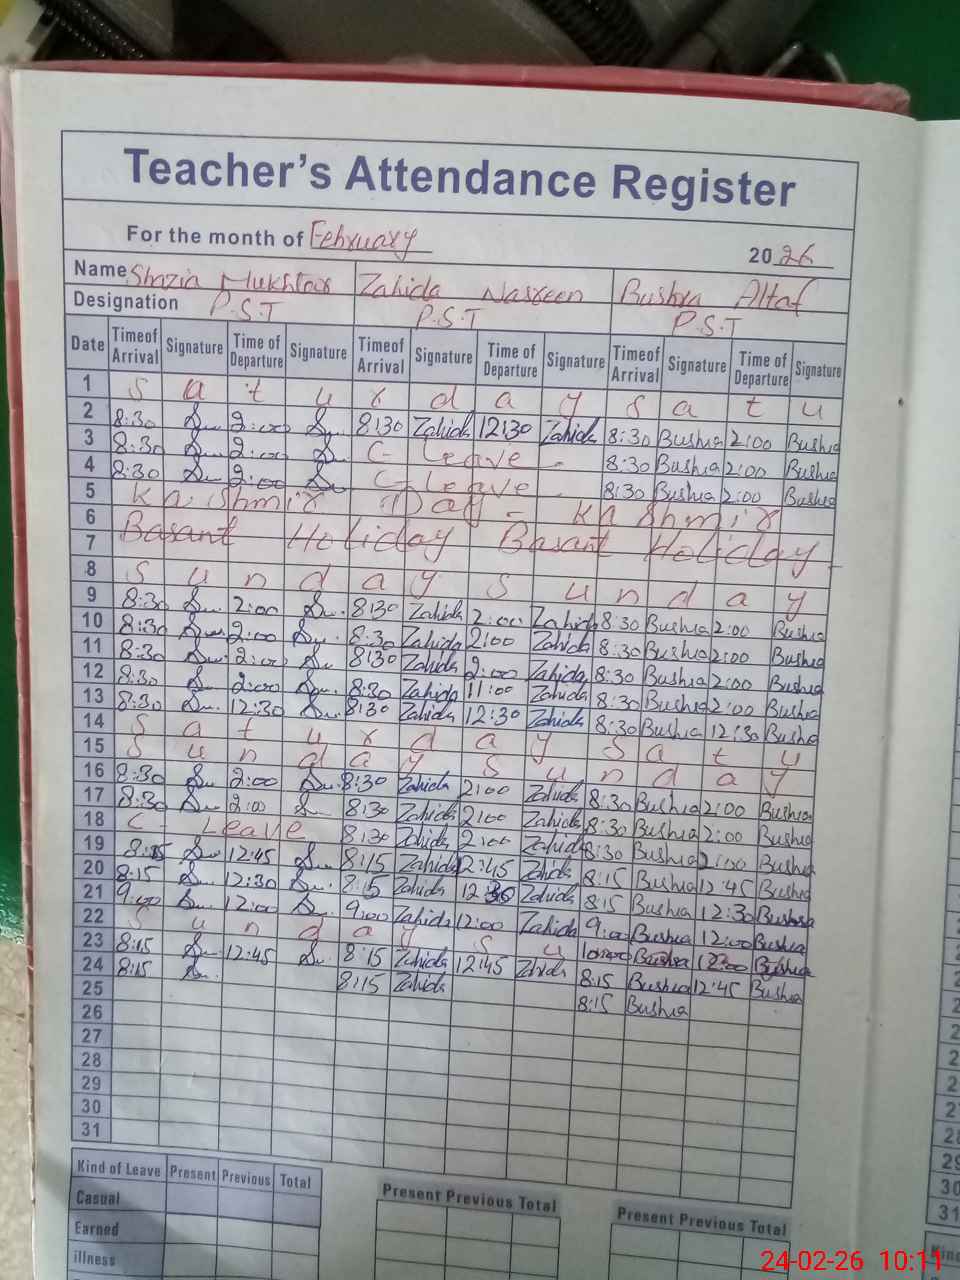 Teacher's Attendance Register
For the month of February 2026
Name Shazia Mukhtar Zahida Nasreen Bushra Altaf
Designation P.S.T P.S.T P.S.T
Date Timeof Arrival Signature Time of Departure Signature Timeof Arrival Signature Time of Departure Signature Timeof Arrival Signature Time of Departure Signature
1 S a t u r d a y S a t u
2 8:30 2:00 8:30 Zahida 12:30 Zahida 8:30 Bushra 2:00 Bushra
3 8:30 2:00 C- Leave - 8:30 Bushra 2:00 Bushra
4 8:30 2:00 C- Leave - 8:30 Bushra 2:00 Bushra
5 Khishmir Day - Khshmir
6 Basant Holiday Basant Holiday
7
8 S u n d a y S u n d a y
9 8:30 2:00 8:30 Zahida 2:00 Zahida 8:30 Bushra 2:00 Bushra
10 8:30 2:00 8:30 Zahida 2:00 Zahida 8:30 Bushra 2:00 Bushra
11 8:30 2:00 8:30 Zahida 2:00 Zahida 8:30 Bushra 2:00 Bushra
12 8:30 2:00 8:30 Zahida 11:00 Zahida 8:30 Bushra 2:00 Bushra
13 8:30 12:30 8:30 Zahida 12:30 Zahida 8:30 Bushra 12:30 Bushra
14 S a t u r d a y S a t u
15 S u n d a y S u n d a y
16 8:30 2:00 8:30 Zahida 2:00 Zahida 8:30 Bushra 2:00 Bushra
17 8:30 2:00 8:30 Zahida 2:00 Zahida 8:30 Bushra 2:00 Bushra
18 C- Leave 8:30 Zahida 2:00 Zahida 8:30 Bushra 2:00 Bushra
19 8:15 12:45 8:15 Zahida 12:45 Zahida 8:15 Bushra 12:45 Bushra
20 8:15 12:30 8:15 Zahida 12:30 Zahida 8:15 Bushra 12:30 Bushra
21 9:00 12:00 9:00 Zahida 12:00 Zahida 9:00 Bushra 12:00 Bushra
22 S u n d a y S u 10:00 Bushra 12:00 Bushra
23 8:15 12:45 8:15 Zahida 12:45 Zahida 8:15 Bushra 12:45 Bushra
24 8:15 8:15 Zahida 8:15 Bushra
25
26
27
28
29
30
31
Kind of Leave Present Previous Total Present Previous Total Present Previous Total
Casual
Earned
illness
24-02-26 10:11